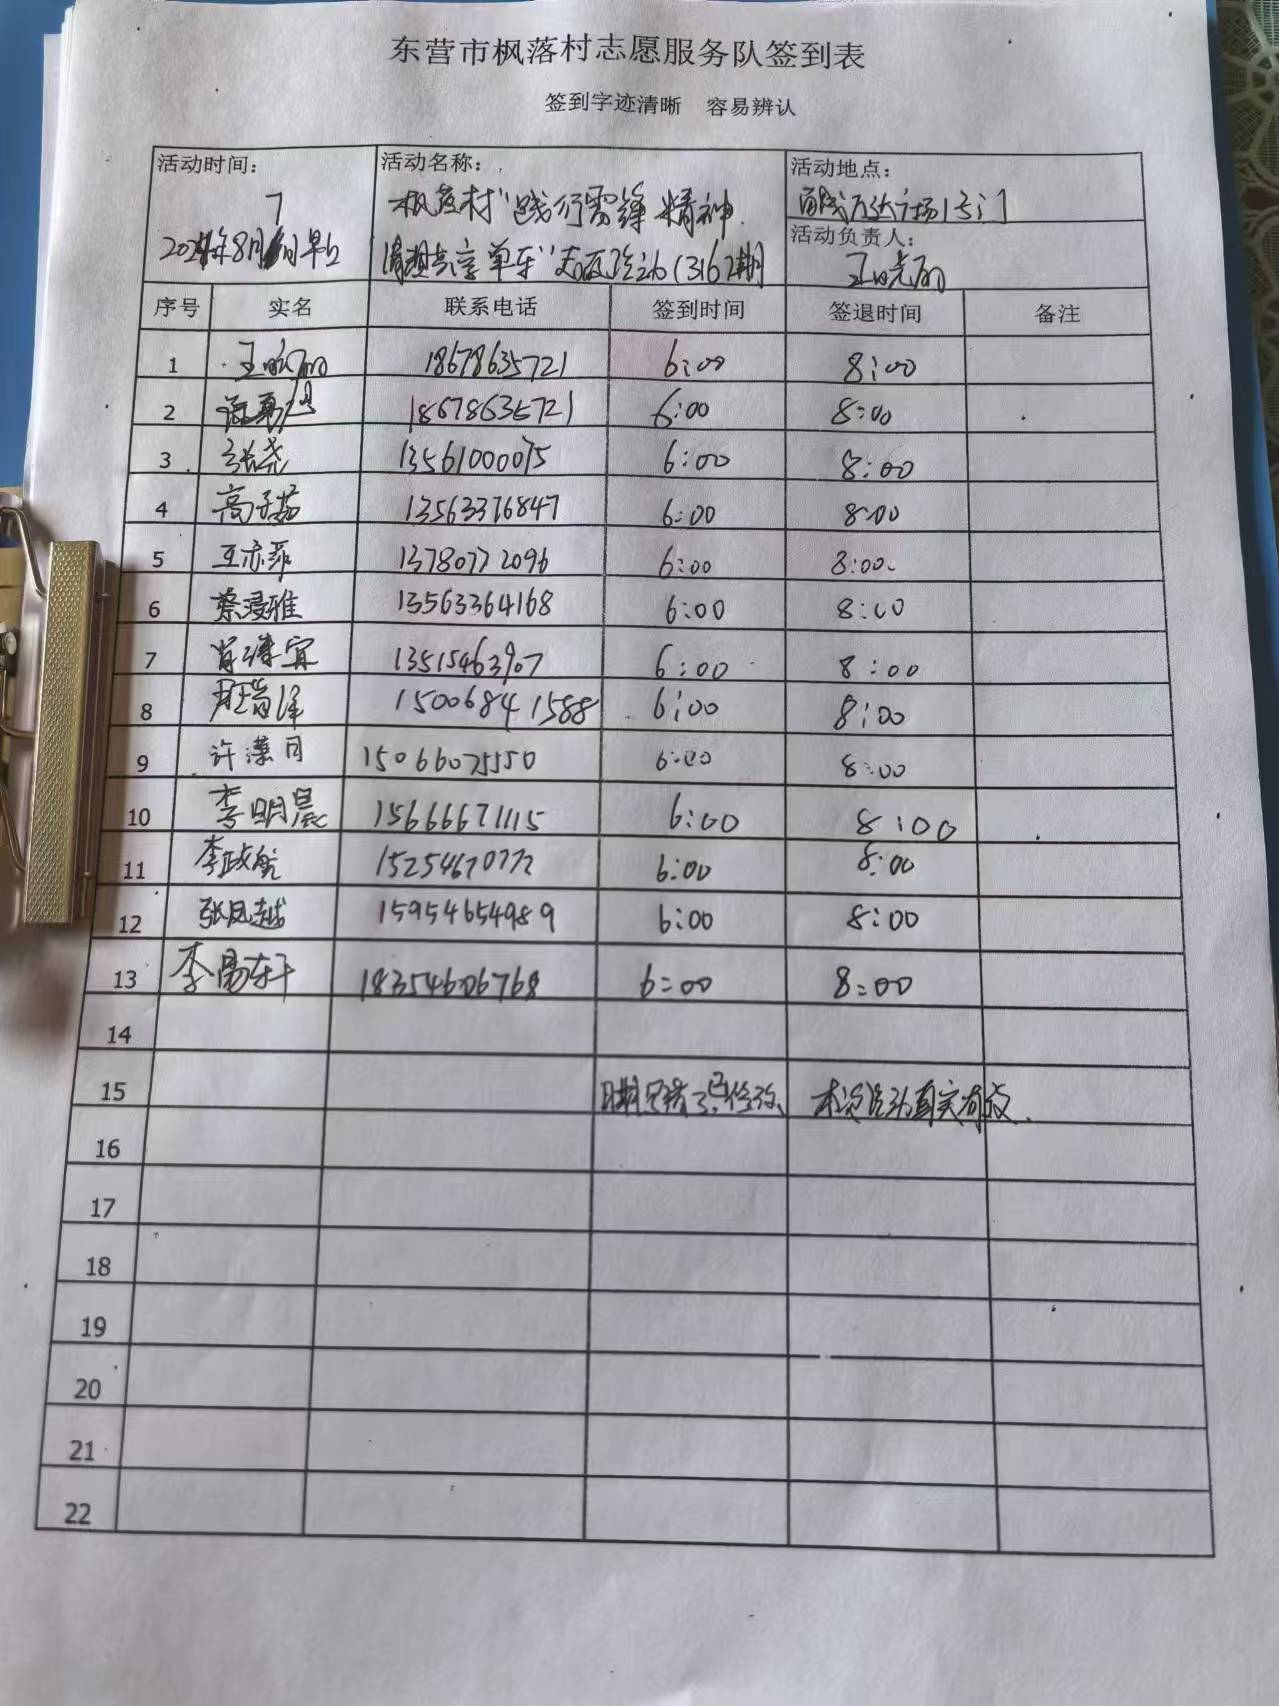 东营市枫落村志愿服务队签到表
签到字迹清晰 容易辨认
活动时间：
7
2024年8月 日早上
活动名称：
枫落村“践行雷锋精神
清理共享单车”志愿活动（3162期
活动地点：
西城万达广场1号门
活动负责人：
王晓丽
序号 实名 联系电话 签到时间 签退时间 备注
1 王晓丽 18678635721 6:00 8:00
2 18678635721 6:00 8:00
3 张尧 13561000075 6:00 8:00
4 高子茹 13563376847 6:00 8:00
5 王亦菲 13780772096 6:00 8:00
6 蔡浸雅 13563364168 6:00 8:00
7 肖瑋宜 13515463907 6:00 8:00
8 15006841588 6:00 8:00
9 许潆月 15066075550 6:00 8:00
10 李明晨 15666671115 6:00 8:00
11 李政航 15254670772 6:00 8:00
12 张凤越 15954654989 6:00 8:00
13 李易轩 18354606768 6:00 8:00
14
15 日期写错了已修改、 本次活动真实有效.
16
17
18
19
20
21
22